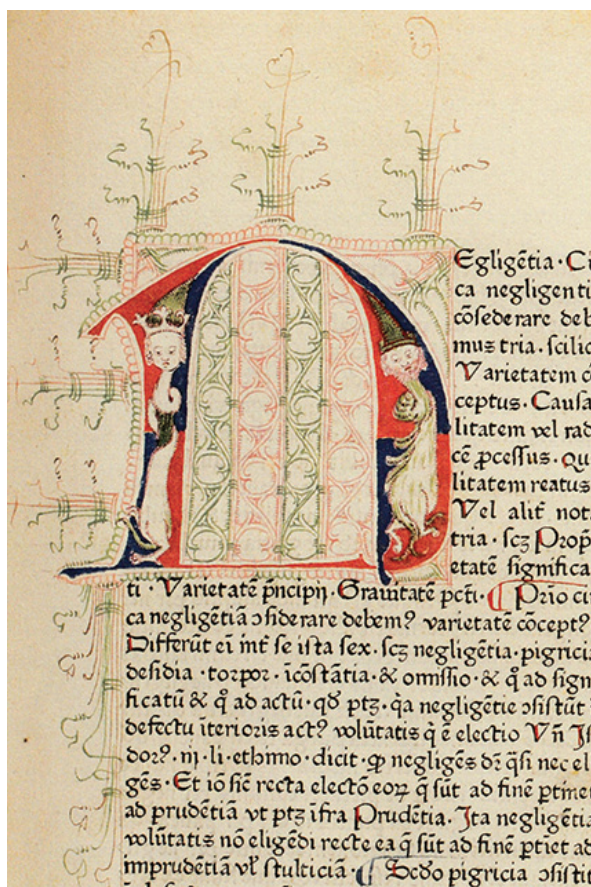 Negligētia · Ci
ca negligenti
cōsederare deb
mus tria · scilic
Varietatem c
ceptus · Causa
litatem vel rad
cē ꝓcessus · qu
litatem reatus
Vel alit̄ not
tria · scꝫ Prop
etatē significa
ti · Varietatē p̄ncipij · Grauitatē pct̄i · ¶ Prīo cir
ca negligētiā ↄsiderare debem? varietatē cōcept?
Differūt ei īnt̄ se ista sex · scꝫ negligētia · pigricia
desidia · torpor · īcōstātia · & omissio · & q̄ ad sign
ficatū & q̄ ad actū · qð ptꝫ · q̄a negligētie ↄsistūt
defectu īterioris act? volūtatis q̄ ē electio Vn̄ Js
dor? · iij · li · ethimo · dicit · ꝙ negligēs dr̄ q̄si nec el
gēs · Et iō sic̄ recta electō eoꝝ q̄ sūt ad finē ꝑtinet
ad prudētiā vt ptꝫ īfra Prudētia · Jta negligētia
volūtatis nō eligēdi recte ea q̄ sūt ad finē ꝑtiet ad
imprudētiā vl̄ stulticiā · ¶ Scðo pigricia ↄsistit